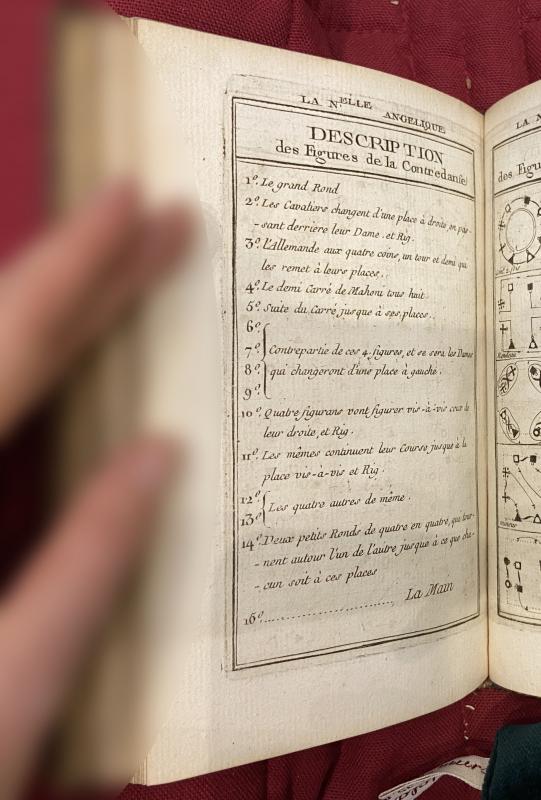 LA N.ELLE ANGELIQUE
DESCRIPTION
des Figures de la Contredanse
1º. Le grand Rond
2º. Les Cavaliers changent d'une place à droite en pas-
-sant derriere leur Dame. et Rig.
3º. l'Allemande aux quatre coins, un tour et demi qui
les remet à leurs places.
4º. Le demi Carré de Mahoni tous huit
5º. Suite du Carré jusque à ses places.
6º.
7º. Contrepartie de ces 4 figures, et se sera les Dames
8º. qui changeront d'une place à gauche.
9º.
10º. Quatre figurans vont figurer vis-à-vis ceux de
leur droite, et Rig.
11º. Les mêmes continuent leur Course jusque à la
place vis-à-vis et Rig.
12º. Les quatre autres de même.
13º.
14º. Deux petits Ronds de quatre en quatre, que tour-
-nent autour l'un de l'autre jusque à ce que cha-
-cun soit à ces places
La Main
16º.
LA N
des Figu